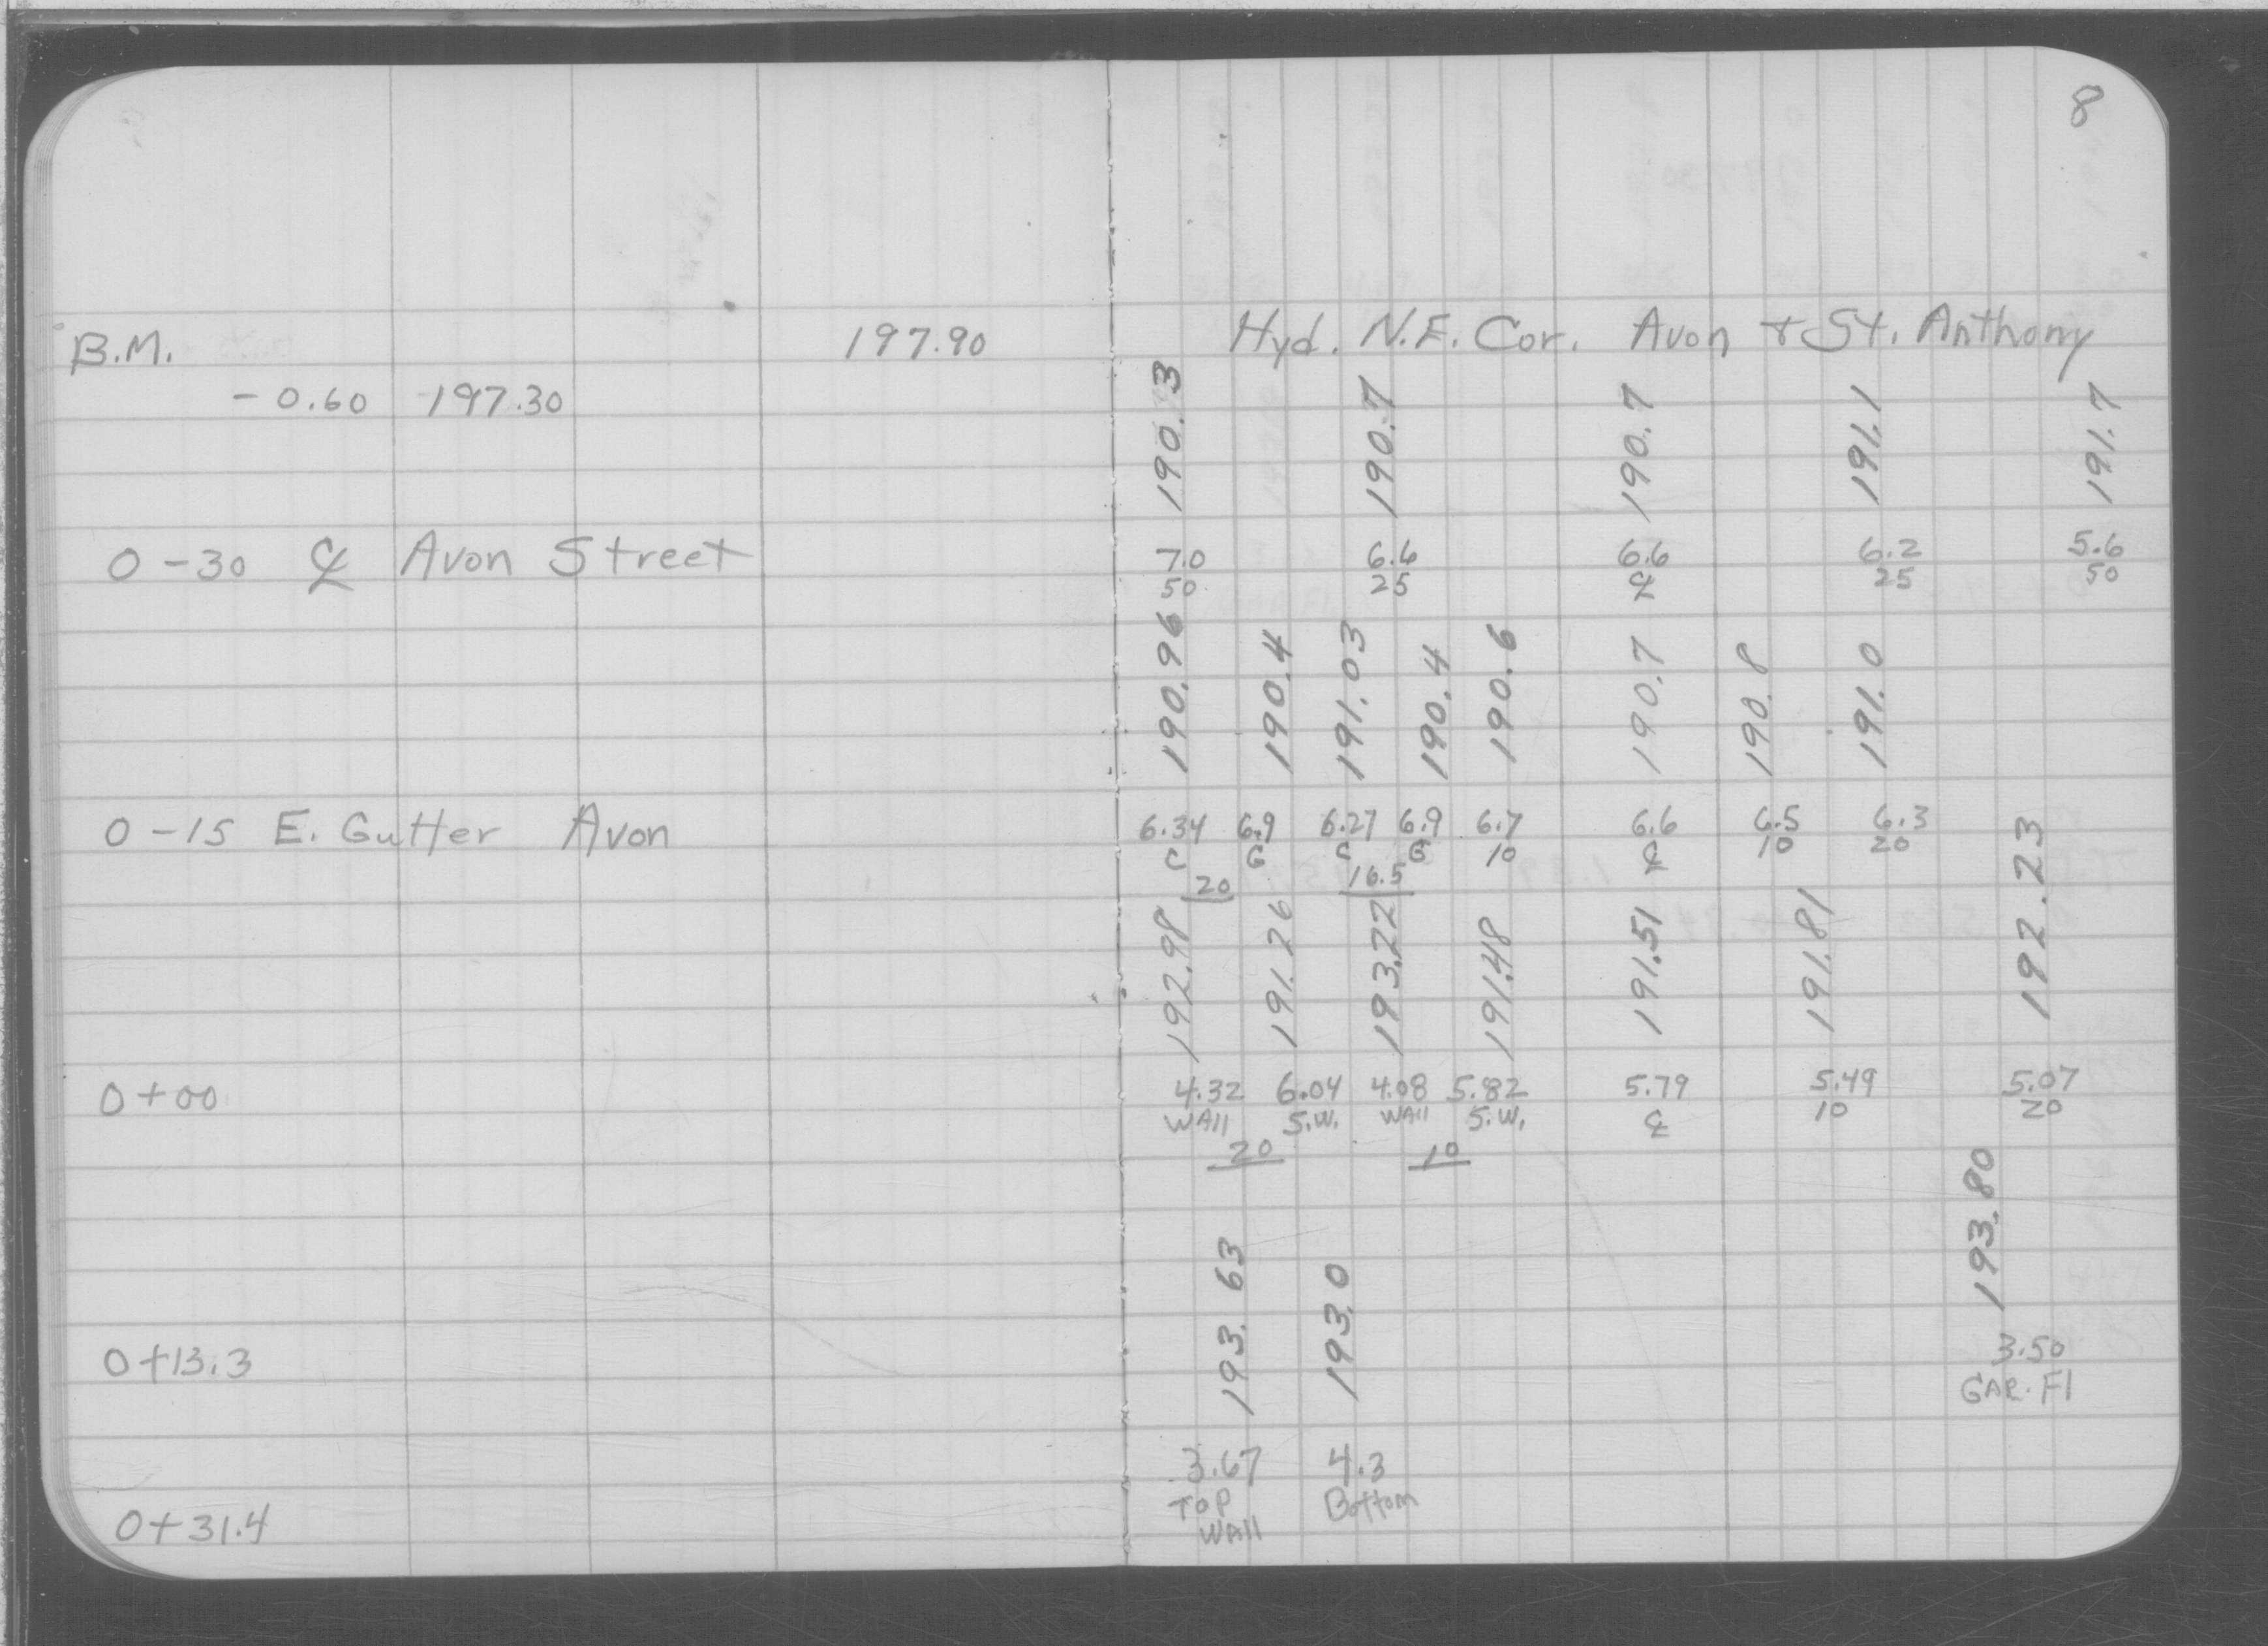 8
B.M. 197.90 Hyd. N.E. Cor. Avon & St. Anthony
-0.60 197.30
190.3 190.7 190.7 191.1 191.7
0-30 ℄ Avon Street 7.0 6.6 6.6 6.2 5.6
50 25 ℄ 25 50
190.96 190.4 191.03 190.4 190.6 190.7 190.8 191.0
0-15 E. Gutter Avon 6.34 6.9 6.27 6.9 6.7 6.6 6.5 6.3
C G C G 10 ℄ 10 20
20 16.5
192.98 191.26 193.22 191.48 191.51 191.81 192.23
0+00 4.32 6.04 4.08 5.82 5.79 5.49 5.07
WAll S.W. WAll S.W. ℄ 10 20
20 10
193.80
193.63 193.0
0+13.3 3.50
GAR. Fl
3.67 4.3
Top Bottom
0+31.4 WAll